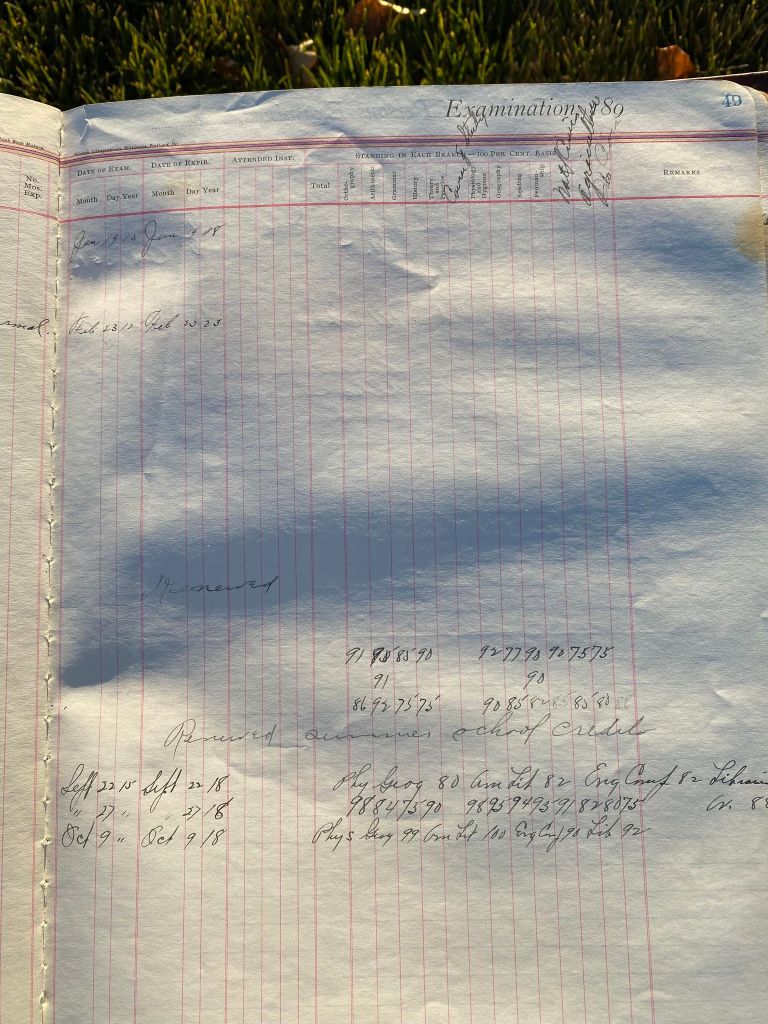 Examination, 189
49
No. Mos. Exp.
DATE OF EXAM.
DATE OF EXPIR.
ATTENDED INST.
STANDING IN EACH BRANCH—100 PER CENT. BASIS
REMARKS
Month Day Year Month Day Year
Total
Orthography
Arithmetic
Grammar
History
Theory and Practice
Physiology and Hygiene
Geography
Reading
Penmanship
Agriculture
Jan 19 15 June 9 18
Feb 23 Feb 23 23
Renewed
91 95 85 90 92 77 90 90 75 75
91 90
86 92 75 75 90 85 82 85 85 80 88
Renewed summer school credits
Sept 22 15 Sept 22 18 Phy Geog 80 Am Lit 82 Eng Comp 82
" 27 " " 27 18 98 84 75 90 98 95 94 95 91 82 80 75
Oct 9 " Oct 9 18 Phys Geog 99 Am Lit 100 Eng Comp 90 Lib 92